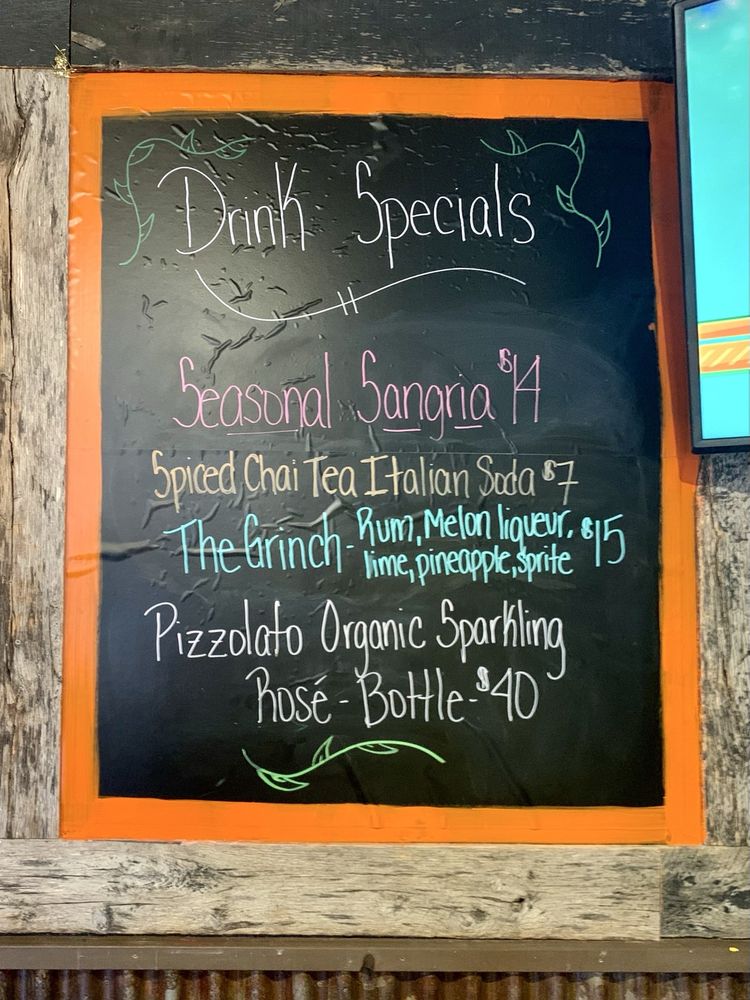 Drink Specials
Seasonal Sangria $14
Spiced Chai Tea Italian Soda $7
The Grinch - Rum, Melon liqueur, $15
lime, pineapple, sprite
Pizzolato Organic Sparkling
Rosé - Bottle - $40